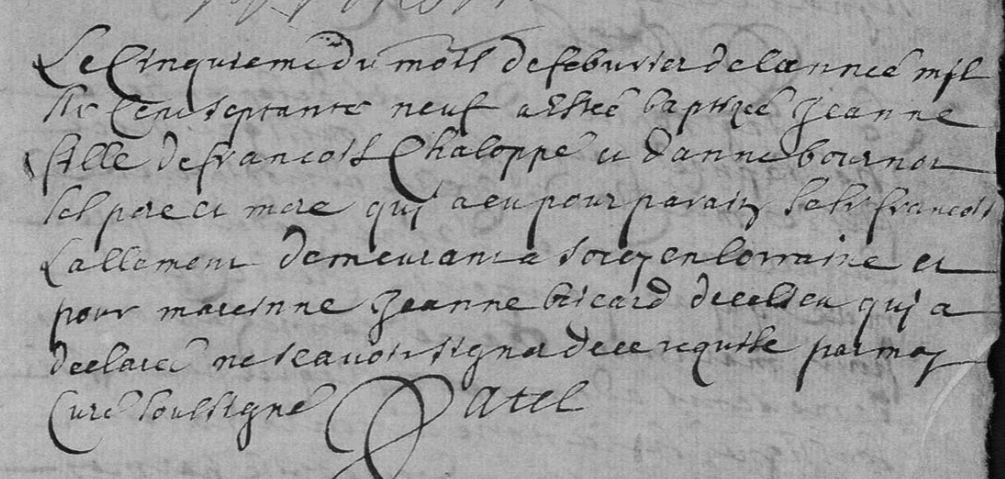 Le Cinquieme du mois de febvrier de lannee mil
six Cent septante neuf a Estee baptizee Jeanne
fille de francois Chaloppe et danne bournot
ses pere et mere quj a eu pour parain le sr francois
Lallement demeurant a sorcy en lorraine et
pour mareinne Jeanne bicard de ce lieu quj a
declaree ne scavoir signer de ce requise par moy
Curé soussigné Patel